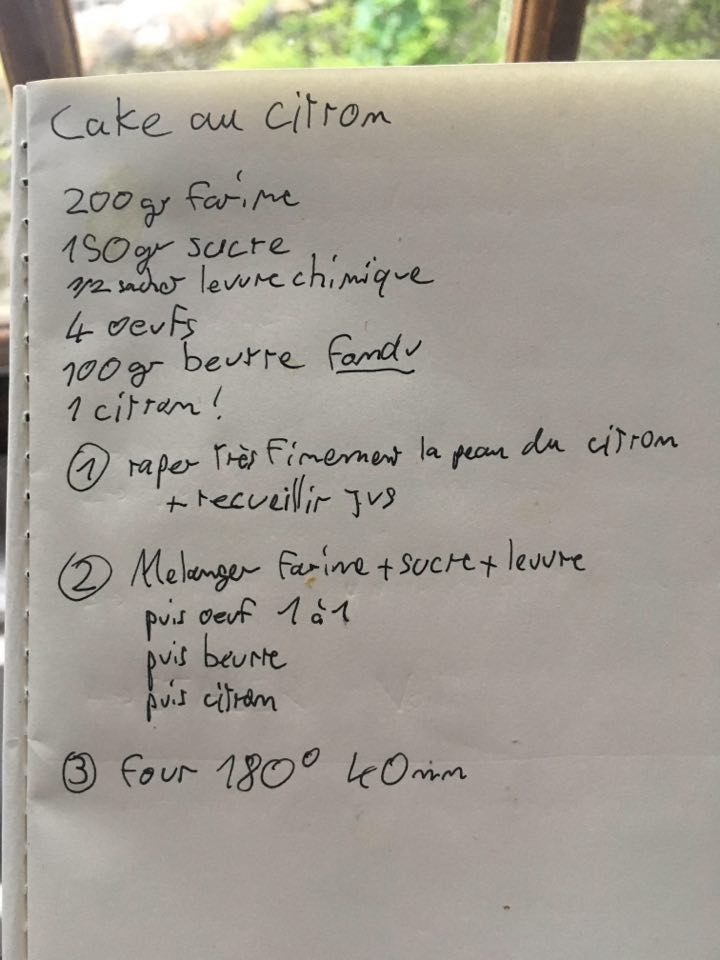 Cake au citron
200gr farine
150gr sucre
1/2 sachet levure chimique
4 oeufs
100gr beurre fondu
1 citron !
① raper très finement la peau du citron
+ recueillir jus
② Melanger farine + sucre + levure
puis oeuf 1 à 1
puis beurre
puis citron
③ four 180° 40min